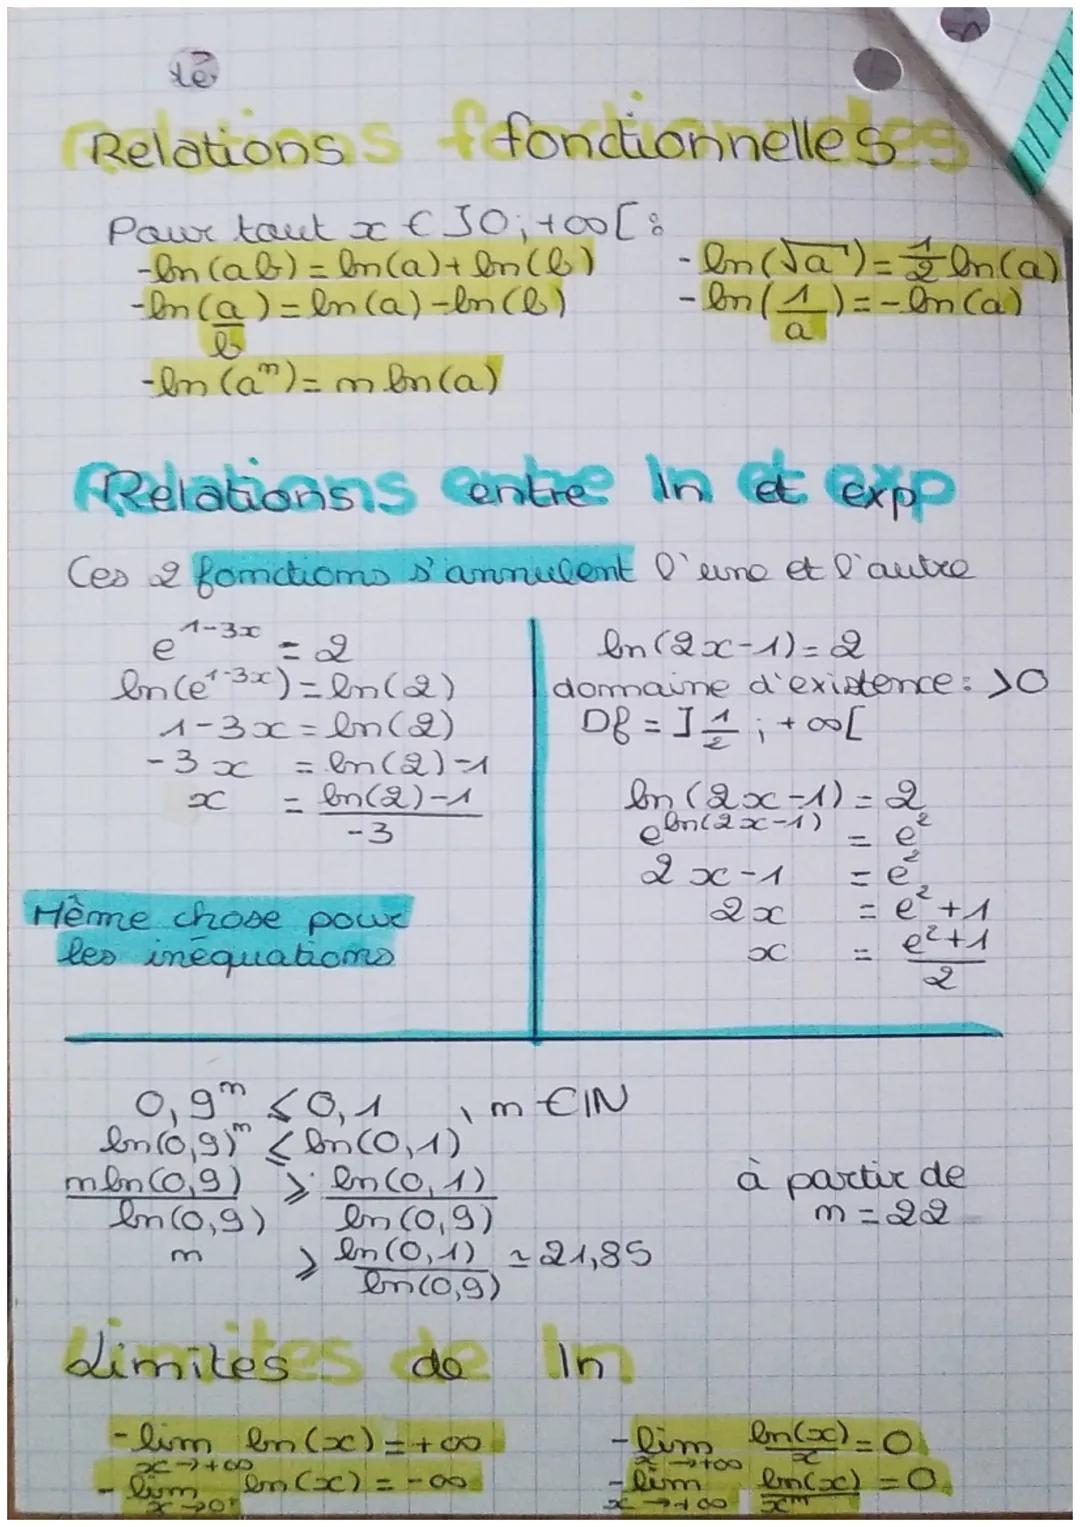 té
Relations fonctionnelles
Pour tout x ∈ ]0; +∞[ :
- ln(ab) = ln(a) + ln(b)
- ln(√a) = 1/2 ln(a)
- ln(a/b) = ln(a) - ln(b)
- ln(1/a) = - ln(a)
- ln(aⁿ) = n ln(a)
Relations entre ln et exp
Ces 2 fonctions s'annulent l'une et l'autre
e^(1-3x) = 2
ln(e^(1-3x)) = ln(2)
1-3x = ln(2)
-3x = ln(2)-1
x = (ln(2)-1)/-3
Même chose pour
les inéquations
ln(2x-1) = 2
domaine d'existence : >0
Df = ]1/2 ; +∞[
ln(2x-1) = 2
e^(ln(2x-1)) = e²
2x-1 = e²
2x = e²+1
x = (e²+1)/2
0,9ⁿ ≤ 0,1 , n ∈ IN
ln(0,9)ⁿ ≤ ln(0,1)
n ln(0,9)/ln(0,9) ≥ ln(0,1)/ln(0,9)
n ≥ ln(0,1)/ln(0,9) ≃ 21,85
à partir de
n = 22
Limites de ln
- lim x→+∞ ln(x) = +∞
- lim x→+∞ ln(x)/x = 0
- lim x→0 ln(x) = -∞
- lim x→+∞ ln(x)/xⁿ = 0